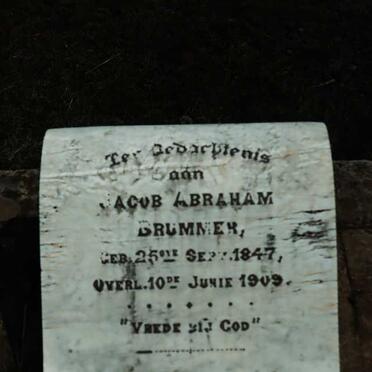 Ter Gedachtenis
aan
JACOB ABRAHAM
BRUMMER,
GEB. 25STE SEPT. 1847,
OVERL. 10DE JUNIE 1909.
"VREDE BIJ GOD"